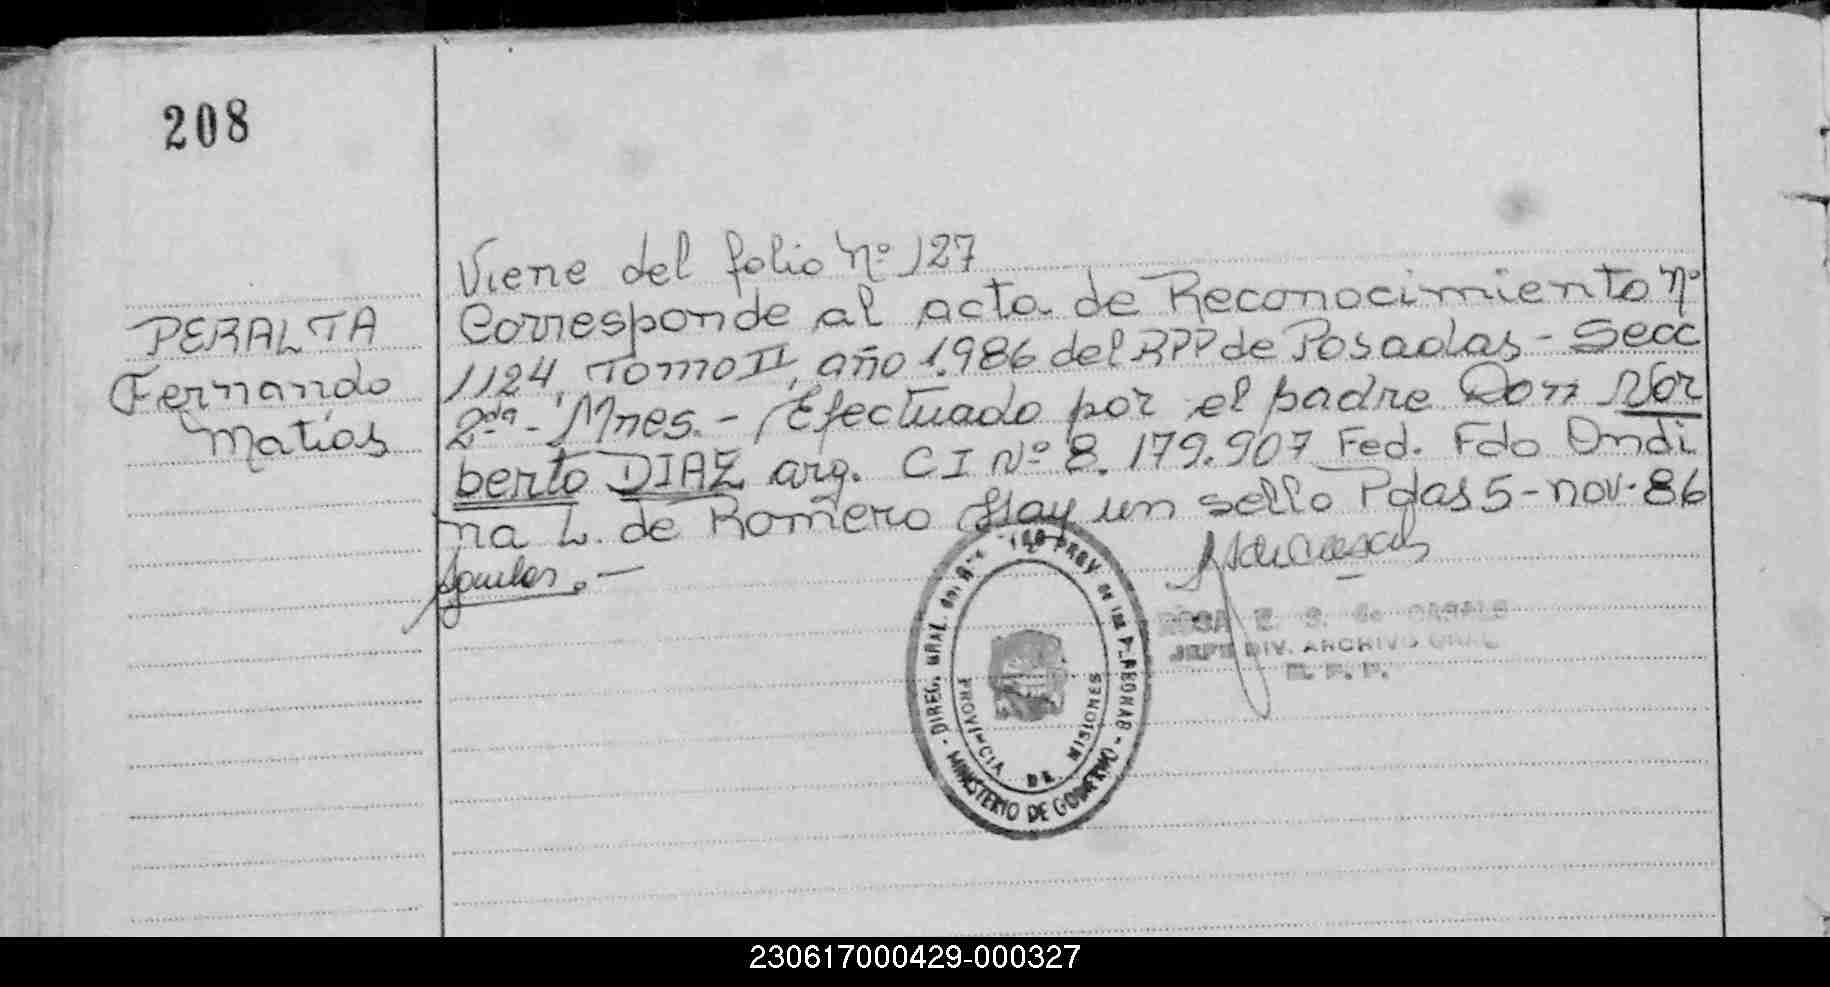 208
PERALTA
Fernando
Matías
Viene del folio Nº 127
Corresponde al acta de Reconocimiento Nº
1124, Tomo II, año 1.986 del RPP de Posadas - Secc
2da - Mnes. - Efectuado por el padre Don Nor
berto DIAZ arg. CI Nº 8.179.907 Fed. Fdo Ondi
na L. de Romero Hay un sello Pdas 5-nov-86
Aguilar. -
ROSA E. S. de CASALS
JEFE DIV. ARCHIVO GRAL
R. P. P.
DIREC. GRAL. del PROV. de las PERSONAS
MINISTERIO DE GOBIERNO
PROVINCIA DE MISIONES
230617000429-000327